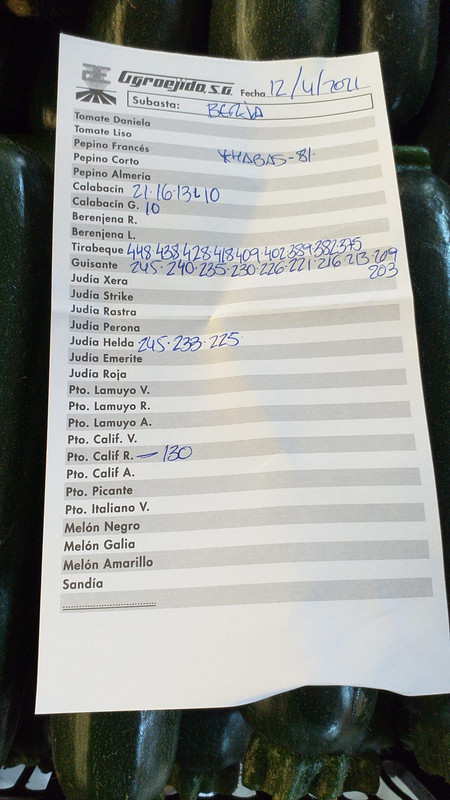 Agroejido, S.A. Fecha 12/4/2021
Subasta: BERJA
Tomate Daniela
Tomate Liso
Pepino Francés
Pepino Corto HABAS-81.
Pepino Almería
Calabacín 21·16·13 10
Calabacín G. 10
Berenjena R.
Berenjena L.
Tirabeque 448·438·428·418·409·402·389·382·375
Guisante 245·240·235·230·226·221·216·213·209
203
Judía Xera
Judía Strike
Judía Rastra
Judía Perona
Judía Helda 245·233·225
Judía Emerite
Judía Roja
Pto. Lamuyo V.
Pto. Lamuyo R.
Pto. Lamuyo A.
Pto. Calif. V.
Pto. Calif R. — 130
Pto. Calif A.
Pto. Picante
Pto. Italiano V.
Melón Negro
Melón Galia
Melón Amarillo
Sandía